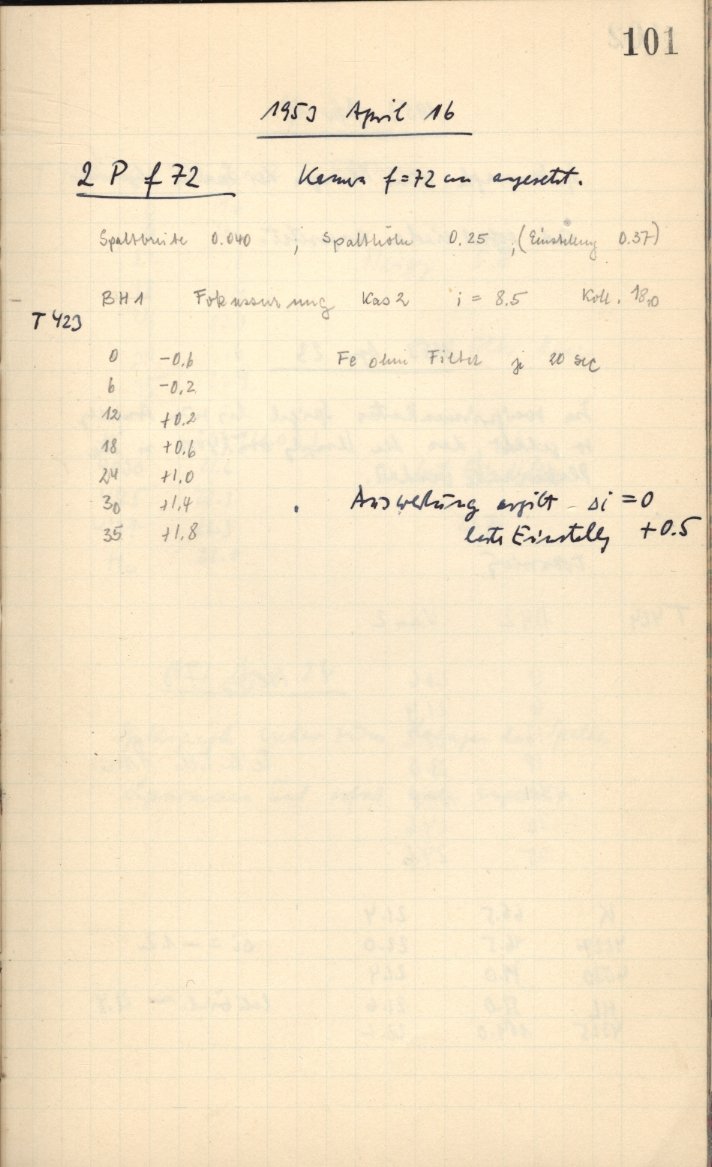 101
1953 April 16
2 P f 72 Kamera f=72 cm angesetzt.
Spaltbreite 0.040 ; Spalthöhe 0.25 , (Einstellung 0.37)
BH1 Fokussierung Kas 2 i = 8.5 Koll. 18,0
T 423
0 -0.6 Fe ohne Filter je 20 sec
6 -0.2
12 +0.2
18 +0.6
24 +1.0
30 +1.4 Auswertung ergibt Δi = 0
35 +1.8 beste Einstellg +0.5